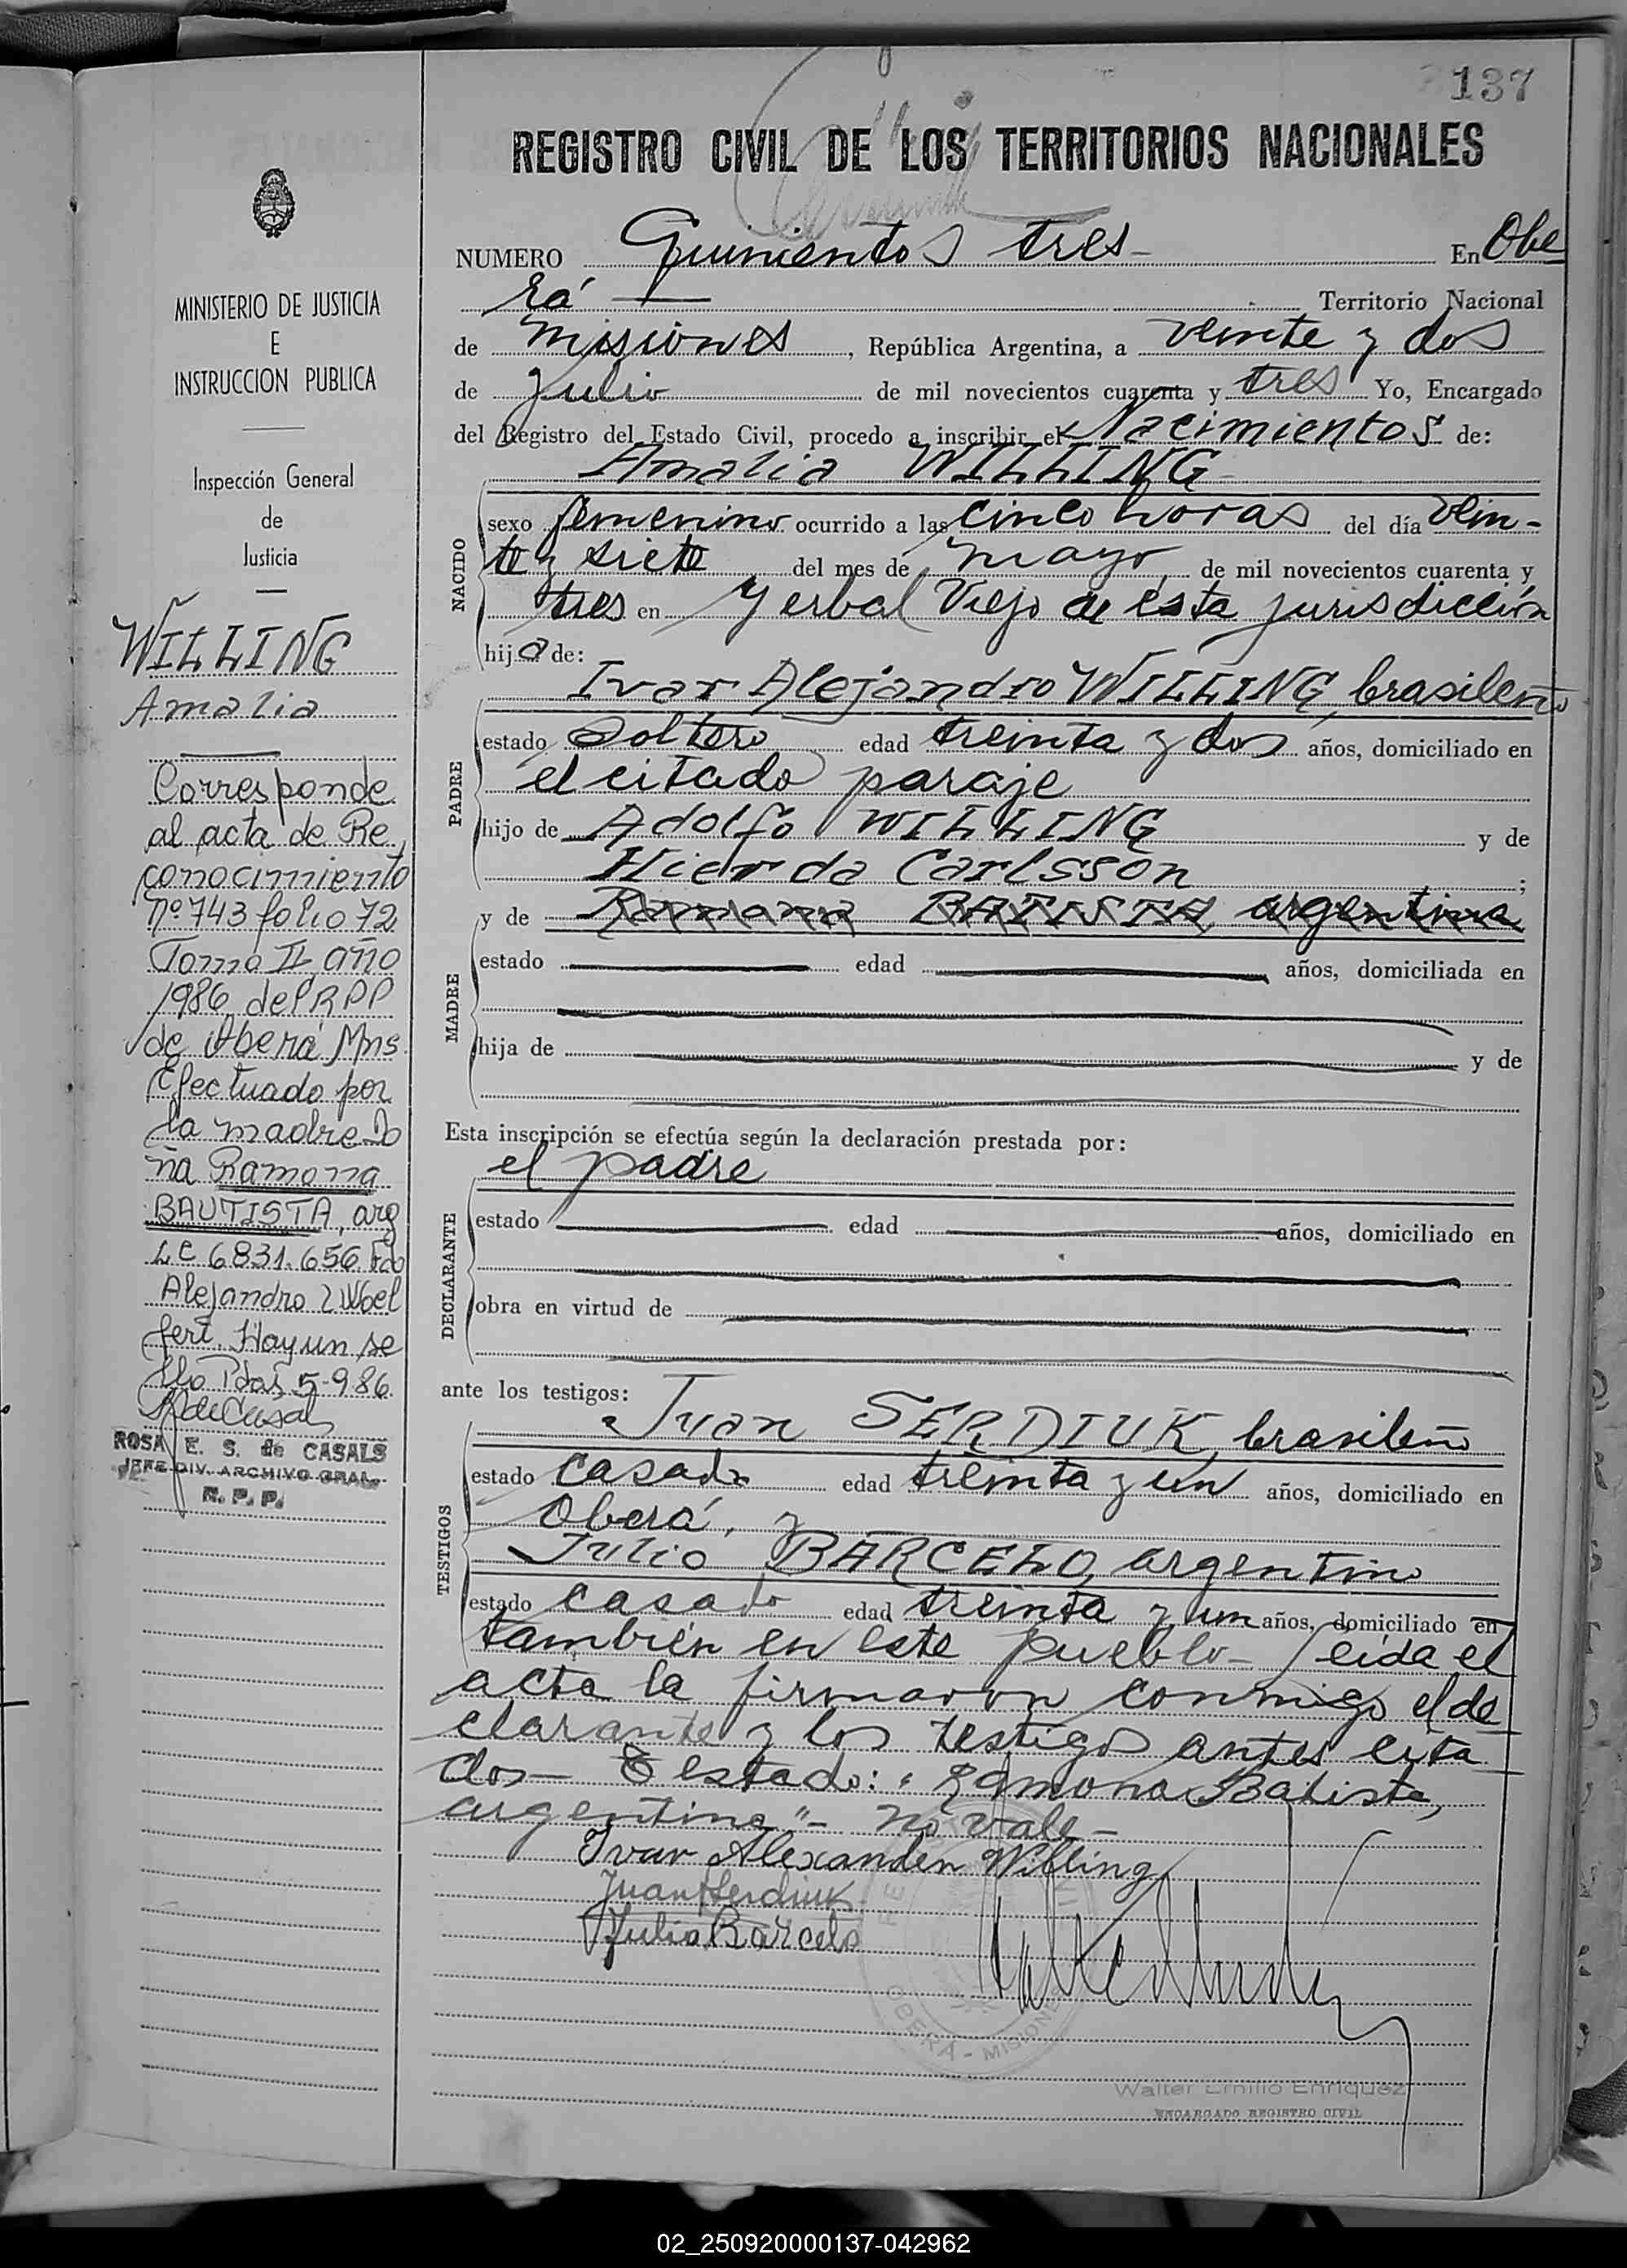 137
REGISTRO CIVIL DE LOS TERRITORIOS NACIONALES
NUMERO Quinientos tres- En Obe
rá Territorio Nacional
de Misiones, República Argentina, a veinte y dos
de julio de mil novecientos cuarenta y tres Yo, Encargado
del Registro del Estado Civil, procedo a inscribir el Nacimientos de:
Amalia WILLING
NACIDO
sexo femenino ocurrido a las cinco horas del día vein-
te y siete del mes de mayo de mil novecientos cuarenta y
tres en Yerbal Viejo de esta jurisdicción
hija de:
Ivar Alejandro WILLING, brasileño
PADRE
estado Soltero edad treinta y dos años, domiciliado en
el citado paraje
hijo de Adolfo WILLING y de
Hierda Carlsson ;
y de Ramona BATISTA, argentina
MADRE
estado edad años, domiciliada en
hija de y de
Esta inscripción se efectúa según la declaración prestada por:
el padre
DECLARANTE
estado edad años, domiciliado en
obra en virtud de
ante los testigos:
Juan SERDIUK, brasileño
TESTIGOS
estado casado edad treinta y un años, domiciliado en
Oberá, y
Julio BARCELO, argentino
estado casado edad treinta y un años, domiciliado en
también en este pueblo- Leida el
acta la firmaron conmigo el de
clarante y los testigos antes cita
dos- Testado: "Ramona Batista,
argentina"- no vale-
Ivar Alexander Willing
Juan Serdiuk
Julio Barcelo
OBERÁ - MISIONES
Walter Emilio Enriquez
ENCARGADO REGISTRO CIVIL
MINISTERIO DE JUSTICIA
E
INSTRUCCION PUBLICA
Inspección General
de
Justicia
WILLING
Amalia
Corresponde
al acta de Re
conocimiento
Nº 743 folio 72
Tomo II año
1986 del RPP
de Oberá Mns
Efectuado por
la madre Do
ña Ramona
BAUTISTA, arg
LC 6831.656 Fdo
Alejandro Woel
fert. Hay un se
llo Pdas 5-986.
ROSA E. S. de CASALS
JEFE DIV. ARCHIVO GRAL.
R. P. P.
02_250920000137-042962